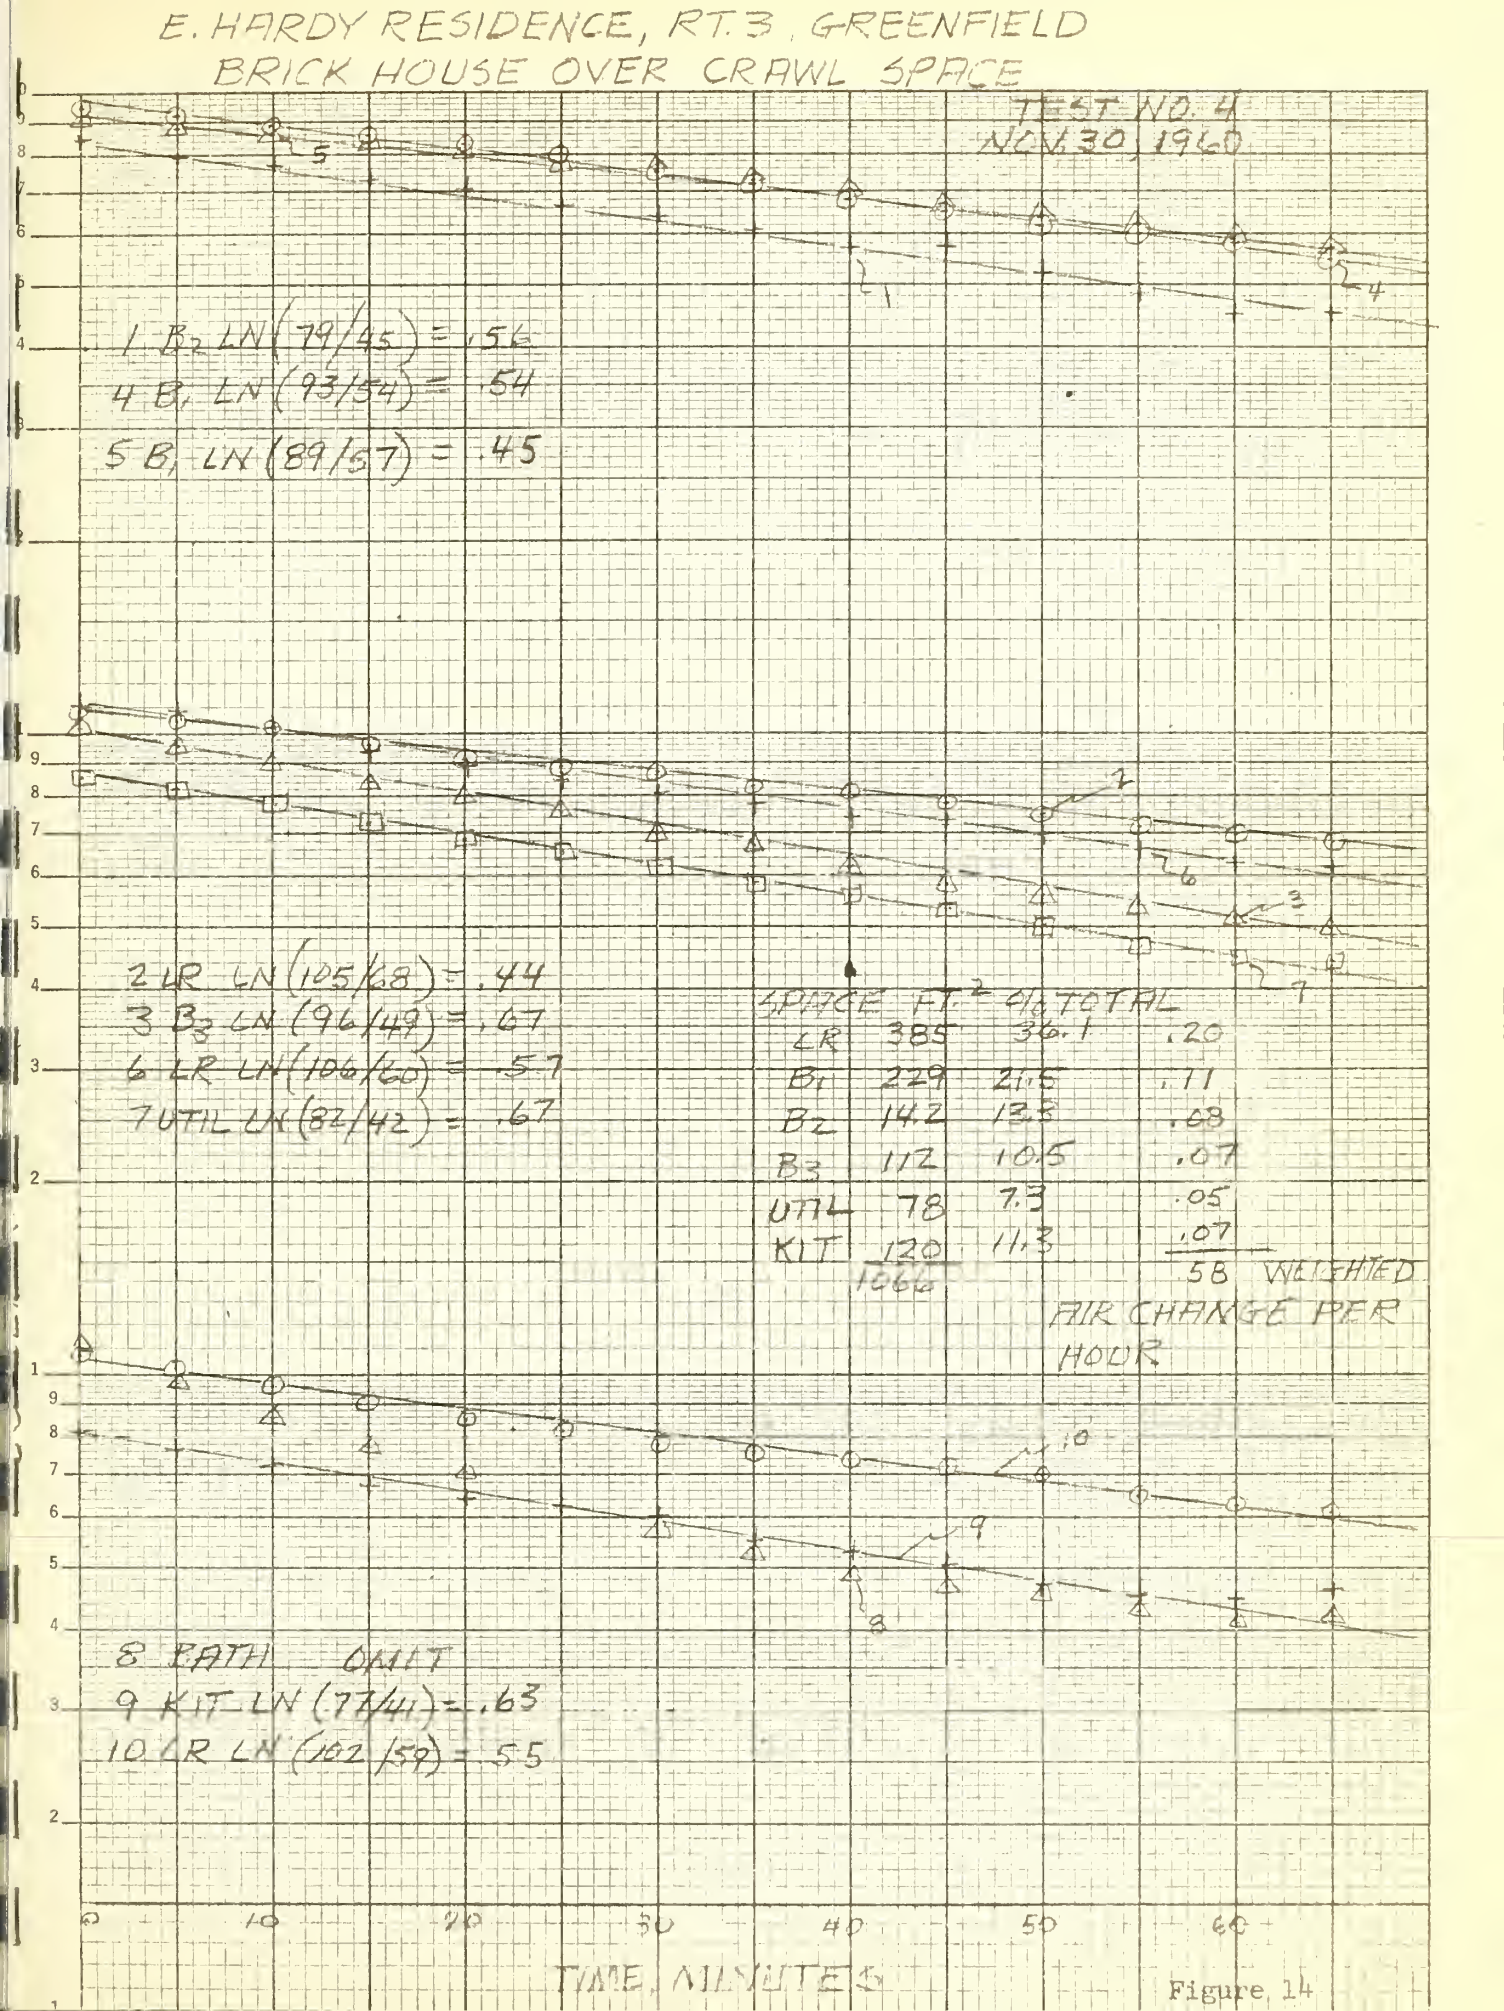 E. HARDY RESIDENCE, RT. 3, GREENFIELD
BRICK HOUSE OVER CRAWL SPACE
TEST NO. 4
NOV. 30, 1960
9
8
7
6
5
4
3
2
5
1
4
1 B2 LN (79/45) = .56
4 B1 LN (93/54) = .54
5 B1 LN (89/57) = .45
1
9
8
7
6
5
4
3
2
2
6
3
7
2 LR LN (105/68) = .44
3 B3 LN (96/49) = .67
6 LR LN (106/60) = .57
7 UTIL LN (82/42) = .67
SPACE FT.2 % TOTAL
LR 385 36.1 .20
B1 229 21.5 .11
B2 142 13.3 .08
B3 112 10.5 .07
UTIL 78 7.3 .05
KIT 120 11.3 .07
1066
.58 WEIGHTED
AIR CHANGE PER
HOUR
1
9
8
7
6
5
4
3
2
1
10
9
8
8 BATH OMIT
9 KIT LN (77/41) = .63
10 LR LN (102/59) = .55
0 10 20 30 40 50 60
TIME, MINUTES
Figure 14